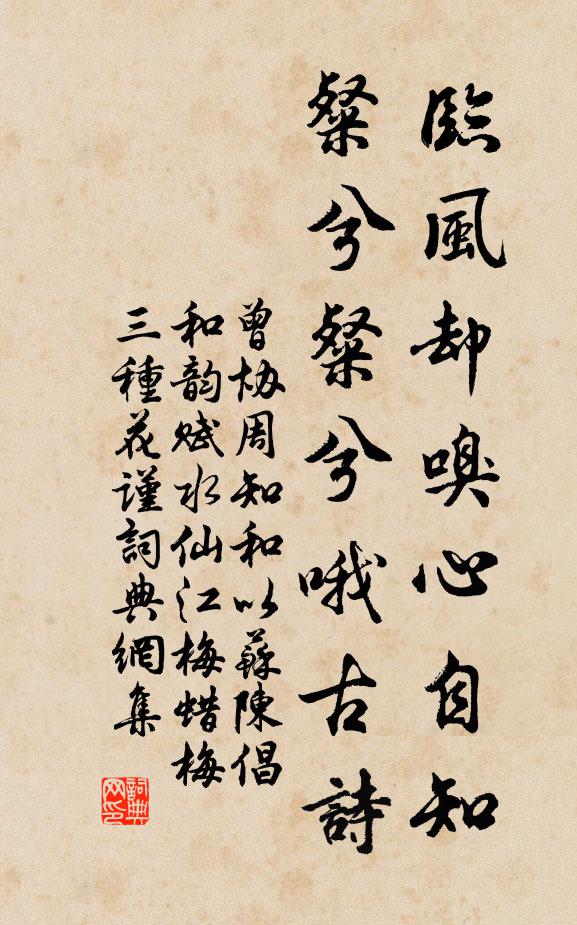 臨風却嗅心自知
粲兮粲兮哦古詩
曾協周知和以蘇陳倡
和韵赋水仙江梅蜡梅
三種花謹詞典網集
詞典
网印